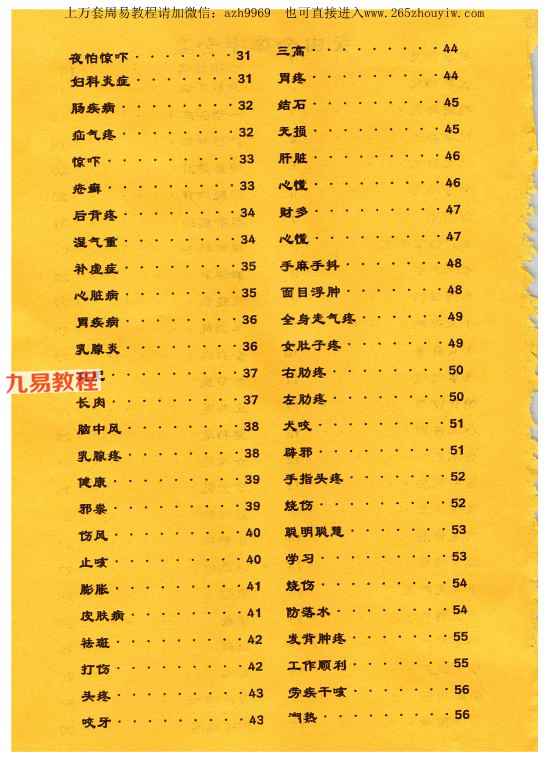 上万套周易教程请加微信：azh9969　也可直接进入www.265zhouyiw.com
夜怕惊吓·······31
妇科炎症·······31
肠疾病········32
疝气疼········32
惊吓·········33
疮癣·········33
后背疼········34
湿气重········34
补虚症········35
心脏病········35
胃疾病········36
乳腺炎········36
九易教程
37
长肉·········37
脑中风········38
乳腺疼········38
健康·········39
邪祟·········39
伤风·········40
止咳·········40
膨胀·········41
皮肤病········41
祛斑·········42
打伤·········42
头疼·········43
咬牙·········43
三高·········44
胃疼·········44
结石·········45
无损·········45
肝脏·········46
心慌·········46
财多·········47
心慌·········47
手麻手抖·······48
面目浮肿·······48
全身走气疼······49
女肚子疼·······49
右肋疼········50
左肋疼········50
犬咬·········51
辟邪·········51
手指头疼·······52
烧伤·········52
聪明聪慧·······53
学习·········53
烧伤·········54
防落水········54
发背肿疼·······55
工作顺利·······55
劳疾干咳·······56
热·········56